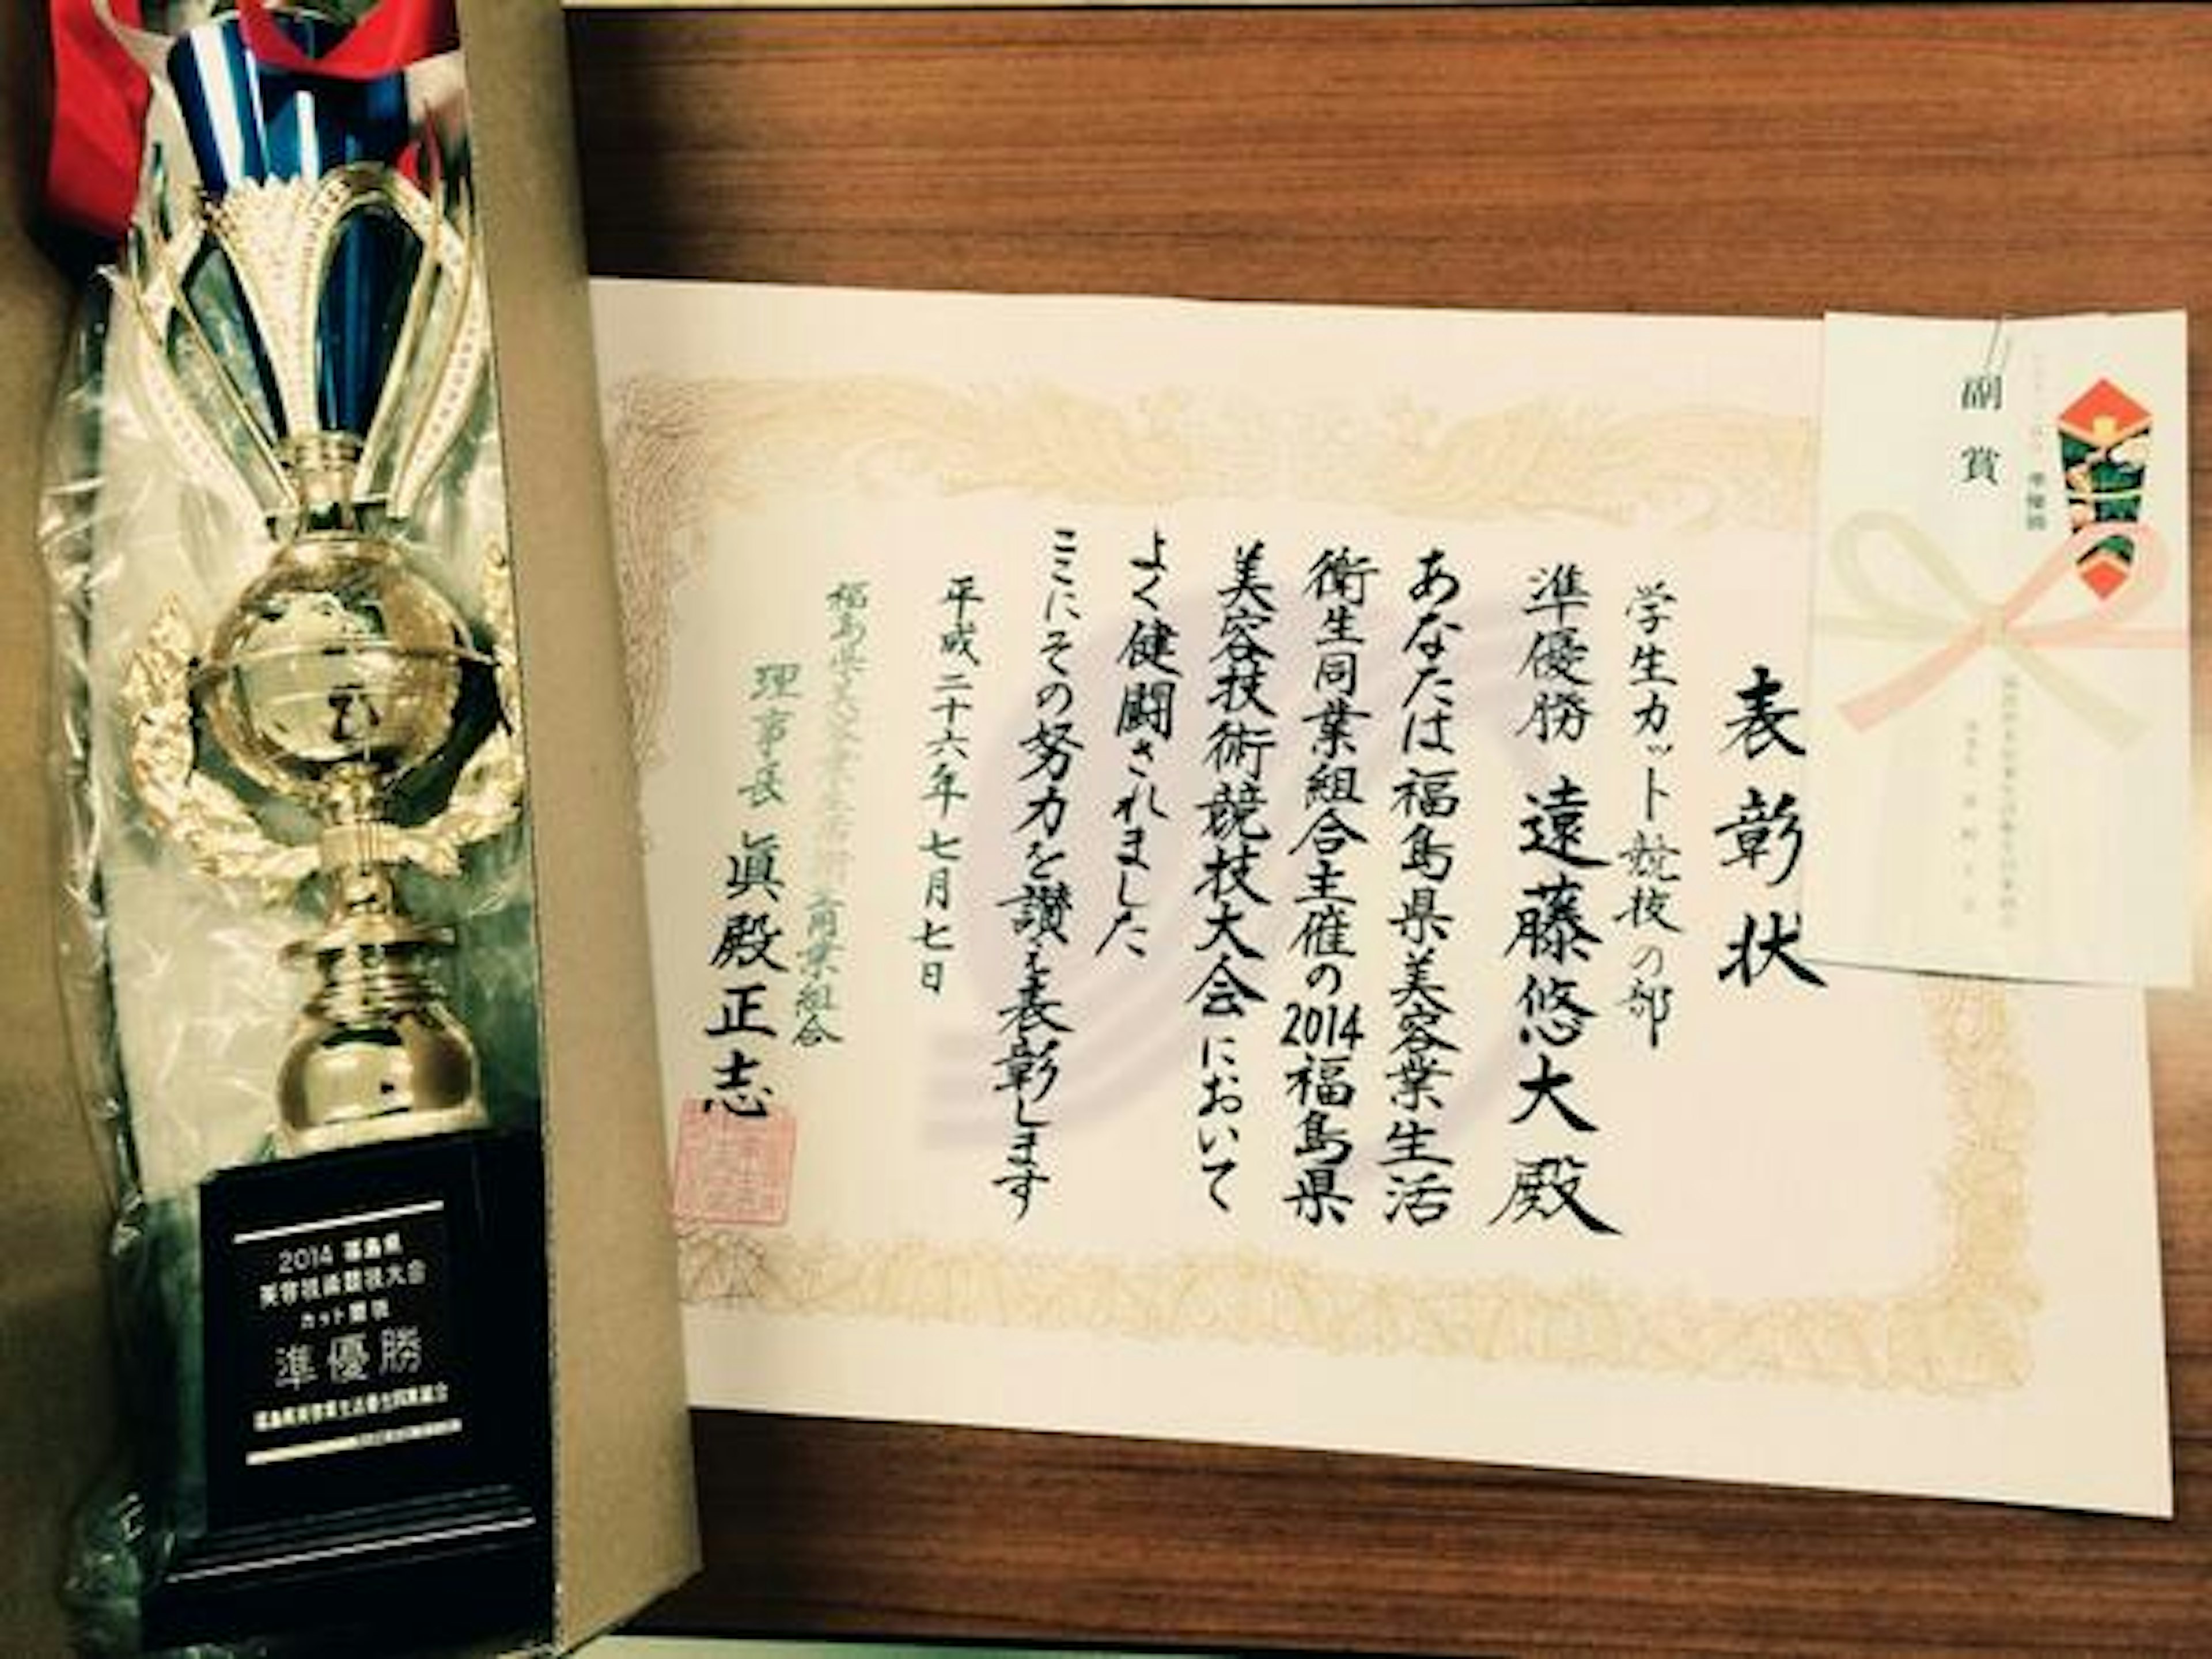 表彰状
学生カット競技の部
準優勝 遠藤悠大殿
あなたは福島県美容業生活
衛生同業組合主催の2014福島県
美容技術競技大会において
よく健闘されました
ここにその努力を讃え表彰します
平成二十六年七月七日
福島県美容業生活衛生同業組合
理事長 眞殿正志
副賞
準優勝
2014 福島県
美容技術競技大会
カット競技
準優勝
福島県美容業生活衛生同業組合